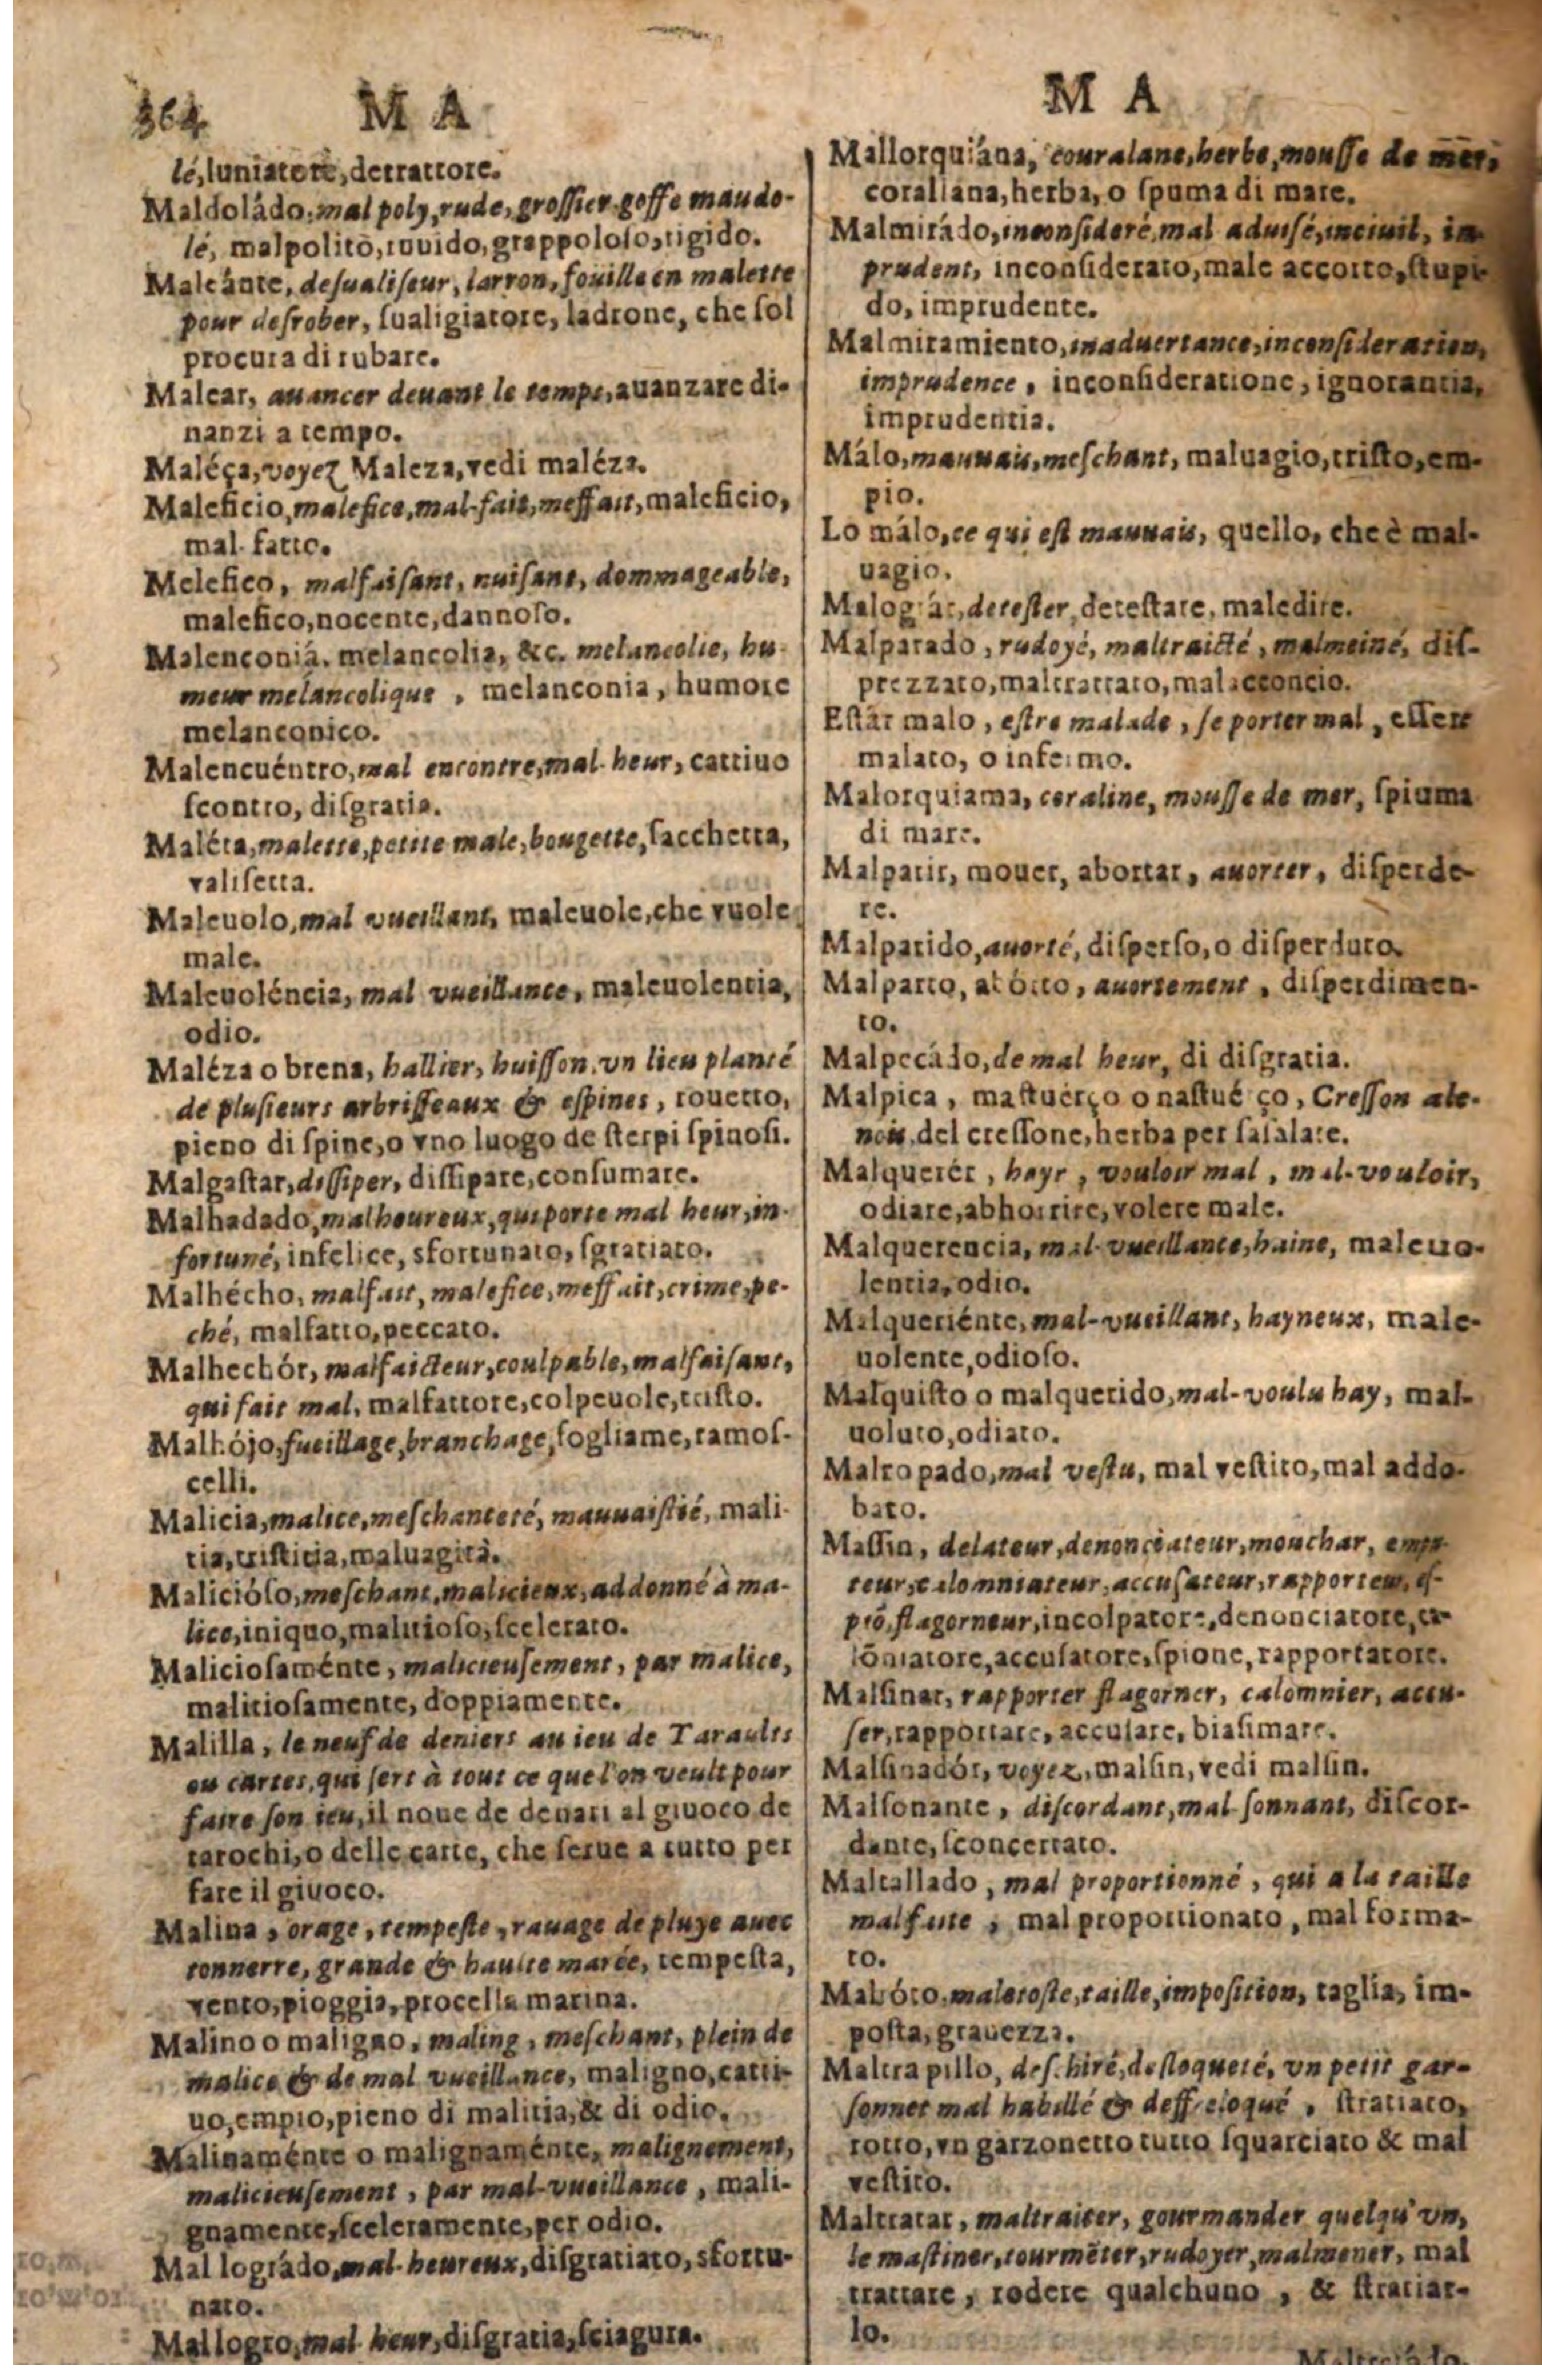 364 M A
lé, luniatore, detrattore.
Maldoládo, mal poly, rude, grossier, goffe maudo-
lé, malpolito, ruuido, grappoloso, rigido.
Maleánte, desualiseur, larron, fouille en malette
pour desrober, sualigiatore, ladrone, che sol
procura di rubare.
Malear, auancer deuant le temps, auanzare di-
nanzi a tempo.
Maléça, voyez Maleza, vedi maléza.
Maleficio, malefice, mal-fait, meffait, maleficio,
mal fatto.
Melefico, malfaisant, nuisant, dommageable,
malefico, nocente, dannoso.
Malenconiá, melancolia, &c. melancolie, hu-
meur melancolique, melanconia, humore
melanconico.
Malencuéntro, mal encontre, mal-heur, cattiuo
scontro, disgratia.
Maléta, malette, petite male, bougette, sacchetta,
valisetta.
Maleuolo, mal vueillant, maleuole, che vuole
male.
Maleuoléncia, mal vueillance, maleuolentia,
odio.
Maléza o brena, hallier, buisson, vn lieu planté
de plusieurs arbrisseaux & espines, rouetto,
pieno di spine, o vno luogo de sterpi spinosi.
Malgastar, dissiper, dissipare, consumare.
Malhadado, malheureux, qui porte mal heur, in-
fortuné, infelice, sfortunato, sgratiato.
Malhécho, malfait, malefice, meffait, crime, pe-
ché, malfatto, peccato.
Malhechór, malfaicteur, coulpable, malfaisant,
qui fait mal, malfattore, colpeuole, tristo.
Malhójo, fueillage, branchage, fogliame, ramos-
celli.
Malicia, malice, meschanteté, mauuaistié, mali-
tia, tristitia, maluagità.
Malicióso, meschant, malicieux, addonné à ma-
lice, iniquo, malitioso, scelerato.
Maliciosaménte, malicieusement, par malice,
malitiosamente, doppiamente.
Malilla, le neuf de deniers au ieu de Taraults
ou cartes, qui sert à tout ce que l'on veult pour
faire son ieu, il noue de denari al giuoco de
tarochi, o delle carte, che serue a tutto per
fare il giuoco.
Malina, orage, tempeste, rauage de pluye auec
tonnerre, grande & haulte marée, tempesta,
vento, pioggia, procella marina.
Malino o maligno, maling, meschant, plein de
malice & de mal vueillance, maligno, catti-
uo, empio, pieno di malitia, & di odio.
Malinaménte o malignaménte, malignement,
malicieusement, par mal-vueillance, mali-
gnamente, sceleramente, per odio.
Mal lográdo, mal-heureux, disgratiato, sfortu-
nato.
Mal logro, mal heur, disgratia, sciagura.
M A
Mallorquiána, couralane, herbe, mousse de mer,
corallana, herba, o spuma di mare.
Malmirádo, inconsideré, mal aduisé, inciuil, im-
prudent, inconsiderato, male accorto, stupi-
do, imprudente.
Malmiramiento, inaduertance, inconsideration,
imprudence, inconsideratione, ignorantia,
imprudentia.
Málo, mauuais, meschant, maluagio, tristo, em-
pio.
Lo málo, ce qui est mauuais, quello, che è mal-
uagio.
Malográr, detester, detestare, maledire.
Malparado, rudoyé, maltraicté, malmeiné, dis-
prezzato, maltrattato, malacconcio.
Estár malo, estre malade, se porter mal, essere
malato, o infermo.
Malorquiama, coraline, mousse de mer, spiuma
di mare.
Malparir, mouer, abortar, auorter, disperde-
re.
Malparido, auorté, disperso, o disperduto.
Malparto, abórto, auortement, disperdimen-
to.
Malpecádo, de mal heur, di disgratia.
Malpica, mastuérço o nastué ço, Cresson ale-
nois, del cressone, herba per sasalate.
Malquerér, hayr, vouloir mal, mal-vouloir,
odiare, abhorrire, volere male.
Malquerencia, mal-vueillance, haine, maleuo-
lentia, odio.
Malqueriénte, mal-vueillant, hayneux, male-
uolente, odioso.
Malquisto o malquerido, mal-voulu hay, mal-
uoluto, odiato.
Malropado, mal vestu, mal vestito, mal addo-
bato.
Malsin, delateur, denonciateur, mouchar,
teur, calomniateur, accusateur, rapporteur, es-
piō, flagorneur, incolpatore, denonciatore, ca-
lōniatore, accusatore, spione, rapportatore.
Malsinar, rapporter flagorner, calomnier, accu-
ser, rapportare, accusare, biasimare.
Malsinadór, voyez, malsin, vedi malsin.
Malsonante, discordant, mal sonnant, discor-
dante, sconcertato.
Maltallado, mal proportionné, qui a la taille
mal faite, mal proportionato, mal forma-
to.
maletoste, taille, imposition, taglia, im-
posta, grauezza.
Maltra pillo, deschiré, desloqueté, vn petit gar-
sonnet mal habillé & , stratiato,
rotto, vn garzonetto tutto squarciato & mal
vestito.
Maltratar, maltraiter, gourmander quelqu'vn,
le mastiner, tourmēter, rudoyer, malmener, mal
trattare, rodere qualchuno, & stratiar-
lo.